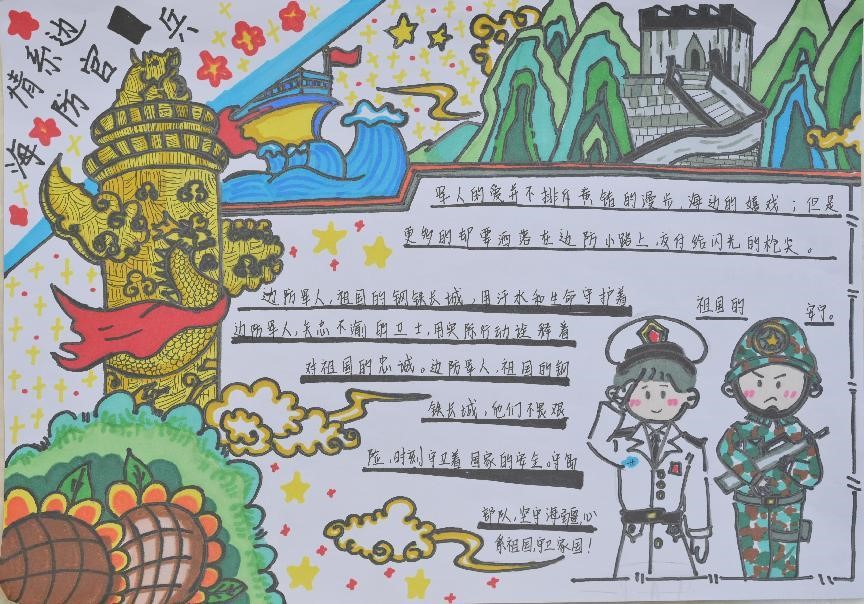 情系边
海防官 兵
军人的爱并不排斥煮饭的漫步,海边的嬉戏;但是
更多的却要洒落在边防小路上,交付给闪光的枪尖。
边防军人,祖国的钢铁长城,用汗水和生命守护着
边防军人,矢志不渝的卫士,用实际行动诠释着
对祖国的忠诚。边防军人,祖国的钢
铁长城,他们不畏艰
险,时刻守卫着国家的安全。守岛
部队,坚守海疆,心
系祖国,守卫家园!
祖国的
安宁。